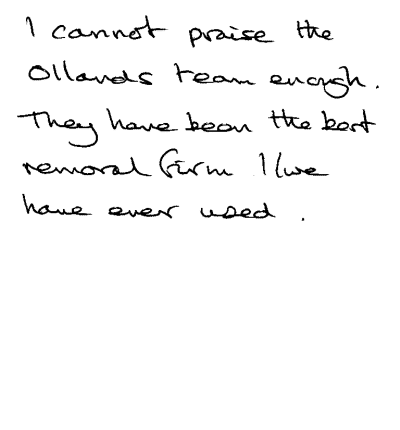 I cannot praise the
Ollands team enough.
They have been the best
removal firm I/we
have ever used.